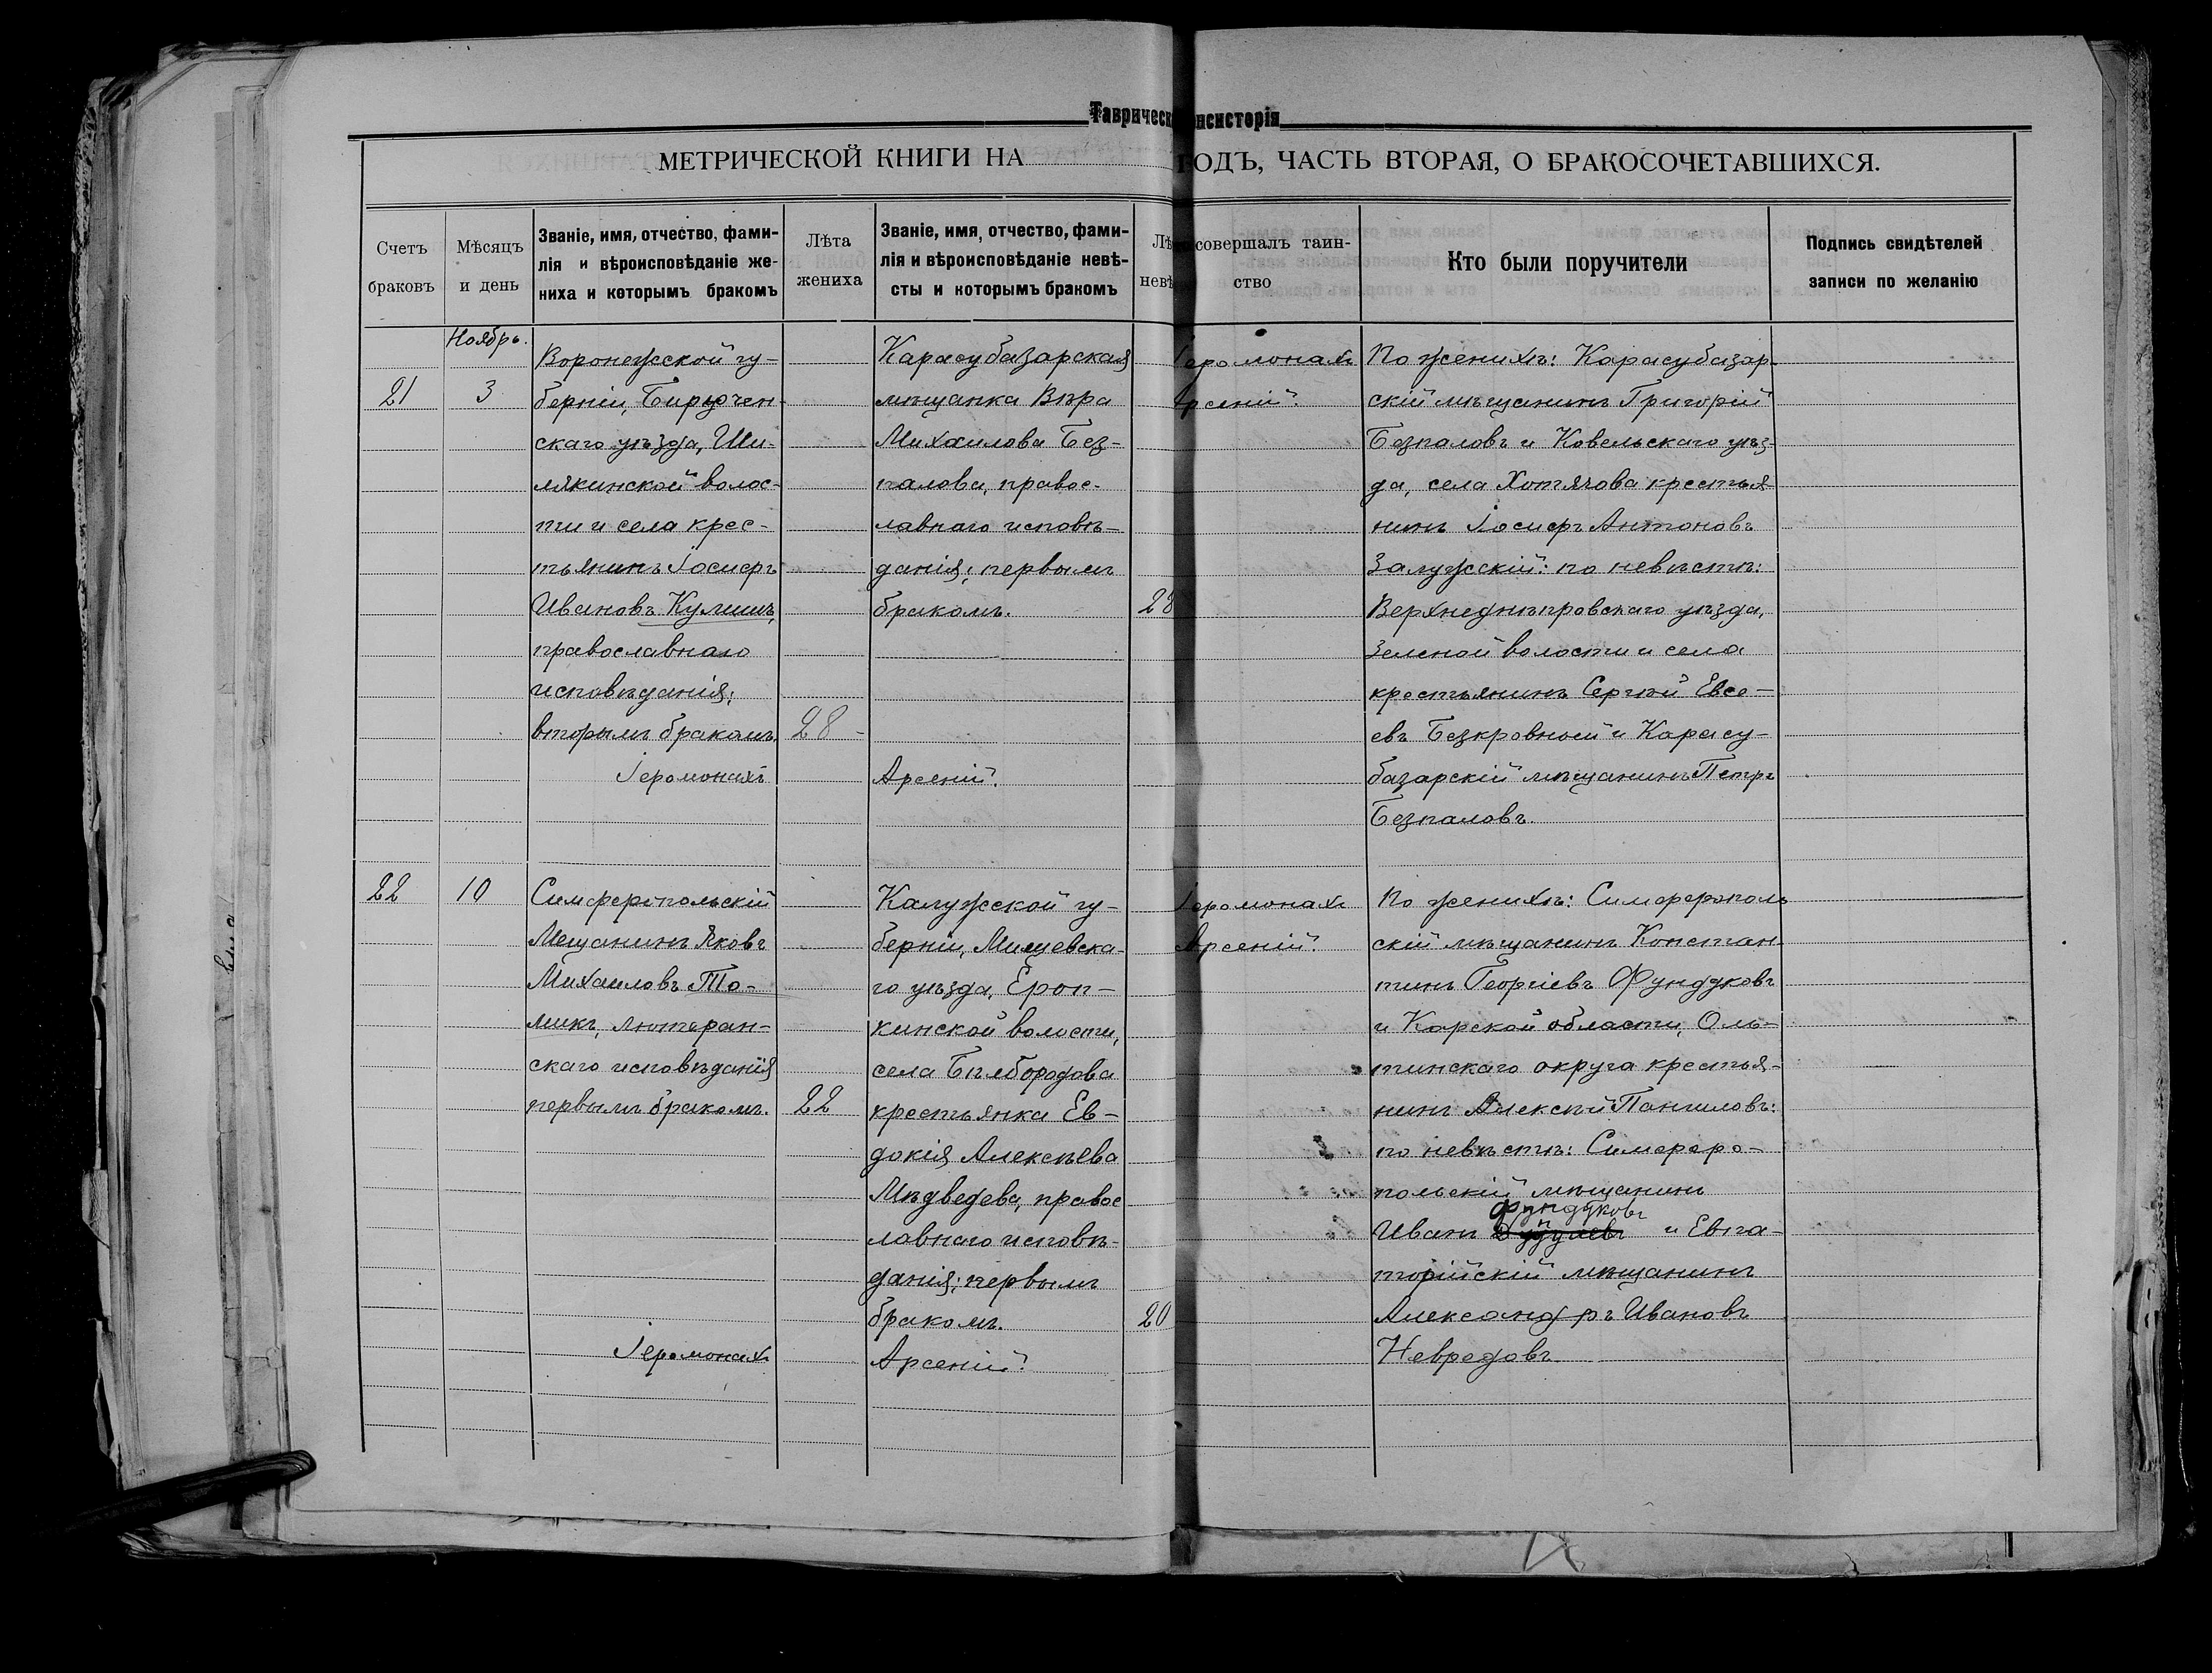 Таврическ
нсисторія
МЕТРИЧЕСКОЙ КНИГИ НА
ГОДЪ, ЧАСТЬ ВТОРАЯ, О БРАКОСОЧЕТАВШИХСЯ.
Счетъ
браковъ
Мѣсяцъ
и день
Званіе, имя, отчество, фами-
лія и вѣроисповѣданіе же-
ниха и которымъ бракомъ
Лѣта
жениха
Званіе, имя, отчество, фами-
лія и вѣроисповѣданіе невѣ-
сты и которымъ бракомъ
Лѣ
невѣ
совершалъ таин-
ство
Кто были поручители
Подпись свидѣтелей
записи по желанію
Ноябрь.
21
3
Воронежской гу-
берніи, Бирючен-
скаго уѣзда, Ши-
лякинской волос-
ти и села крес-
тьянинъ Іосифъ
Ивановъ Кулишъ,
православнаго
исповѣданія;
вторымъ бракомъ.
28
Іеромонахъ
Карасубазарская
мѣщанка Вѣра
Михаилова Без-
палова, правос-
лавнаго исповѣ-
данія; первымъ
бракомъ.
28
Арсеній.
Іеромонахъ
Арсеній.
По женихѣ: Карасубазар-
скій мѣщанинъ Григорій
Безпаловъ и Ковельскаго уѣз-
да, села Хотячова крестья
нинъ Іосифъ Антоновъ
Залужскій: по невѣстѣ:
Верхнеднѣпровскаго уѣзда,
Зеленой волости и села
крестьянинъ Сергѣй Евсе-
евъ Безкровный и Карасу-
базарскій мѣщанинъ Петръ
Безпаловъ.
22
10
Симферопольскій
Мѣщанинъ Яковъ
Михаиловъ То-
микъ, лютеран-
скаго исповѣданія
первымъ бракомъ.
22
Іеромонахъ
Калужской гу-
берніи, Мищевска-
го уѣзда, Ероп-
кинской волости,
села Бѣлбородова
крестьянка Ев-
докія Алексѣева
Мѣдведева, правос
лавнаго исповѣ-
данія; первымъ
бракомъ.
20
Арсеній.
Іеромонахъ
Арсеній.
По женихѣ: Симферополь
скій мѣщанинъ Констан-
тинъ Георгіевъ Фундуковъ
и Карской области, Оль-
тинскаго округа крестья-
нинъ Алексѣй Панчиловъ:
по невѣстѣ: Симферо-
польскій мѣщанинъ
Фундуковъ
Иванъ и Евпа-
торійскій мѣщанинъ
Александръ Ивановъ
Невредовъ.